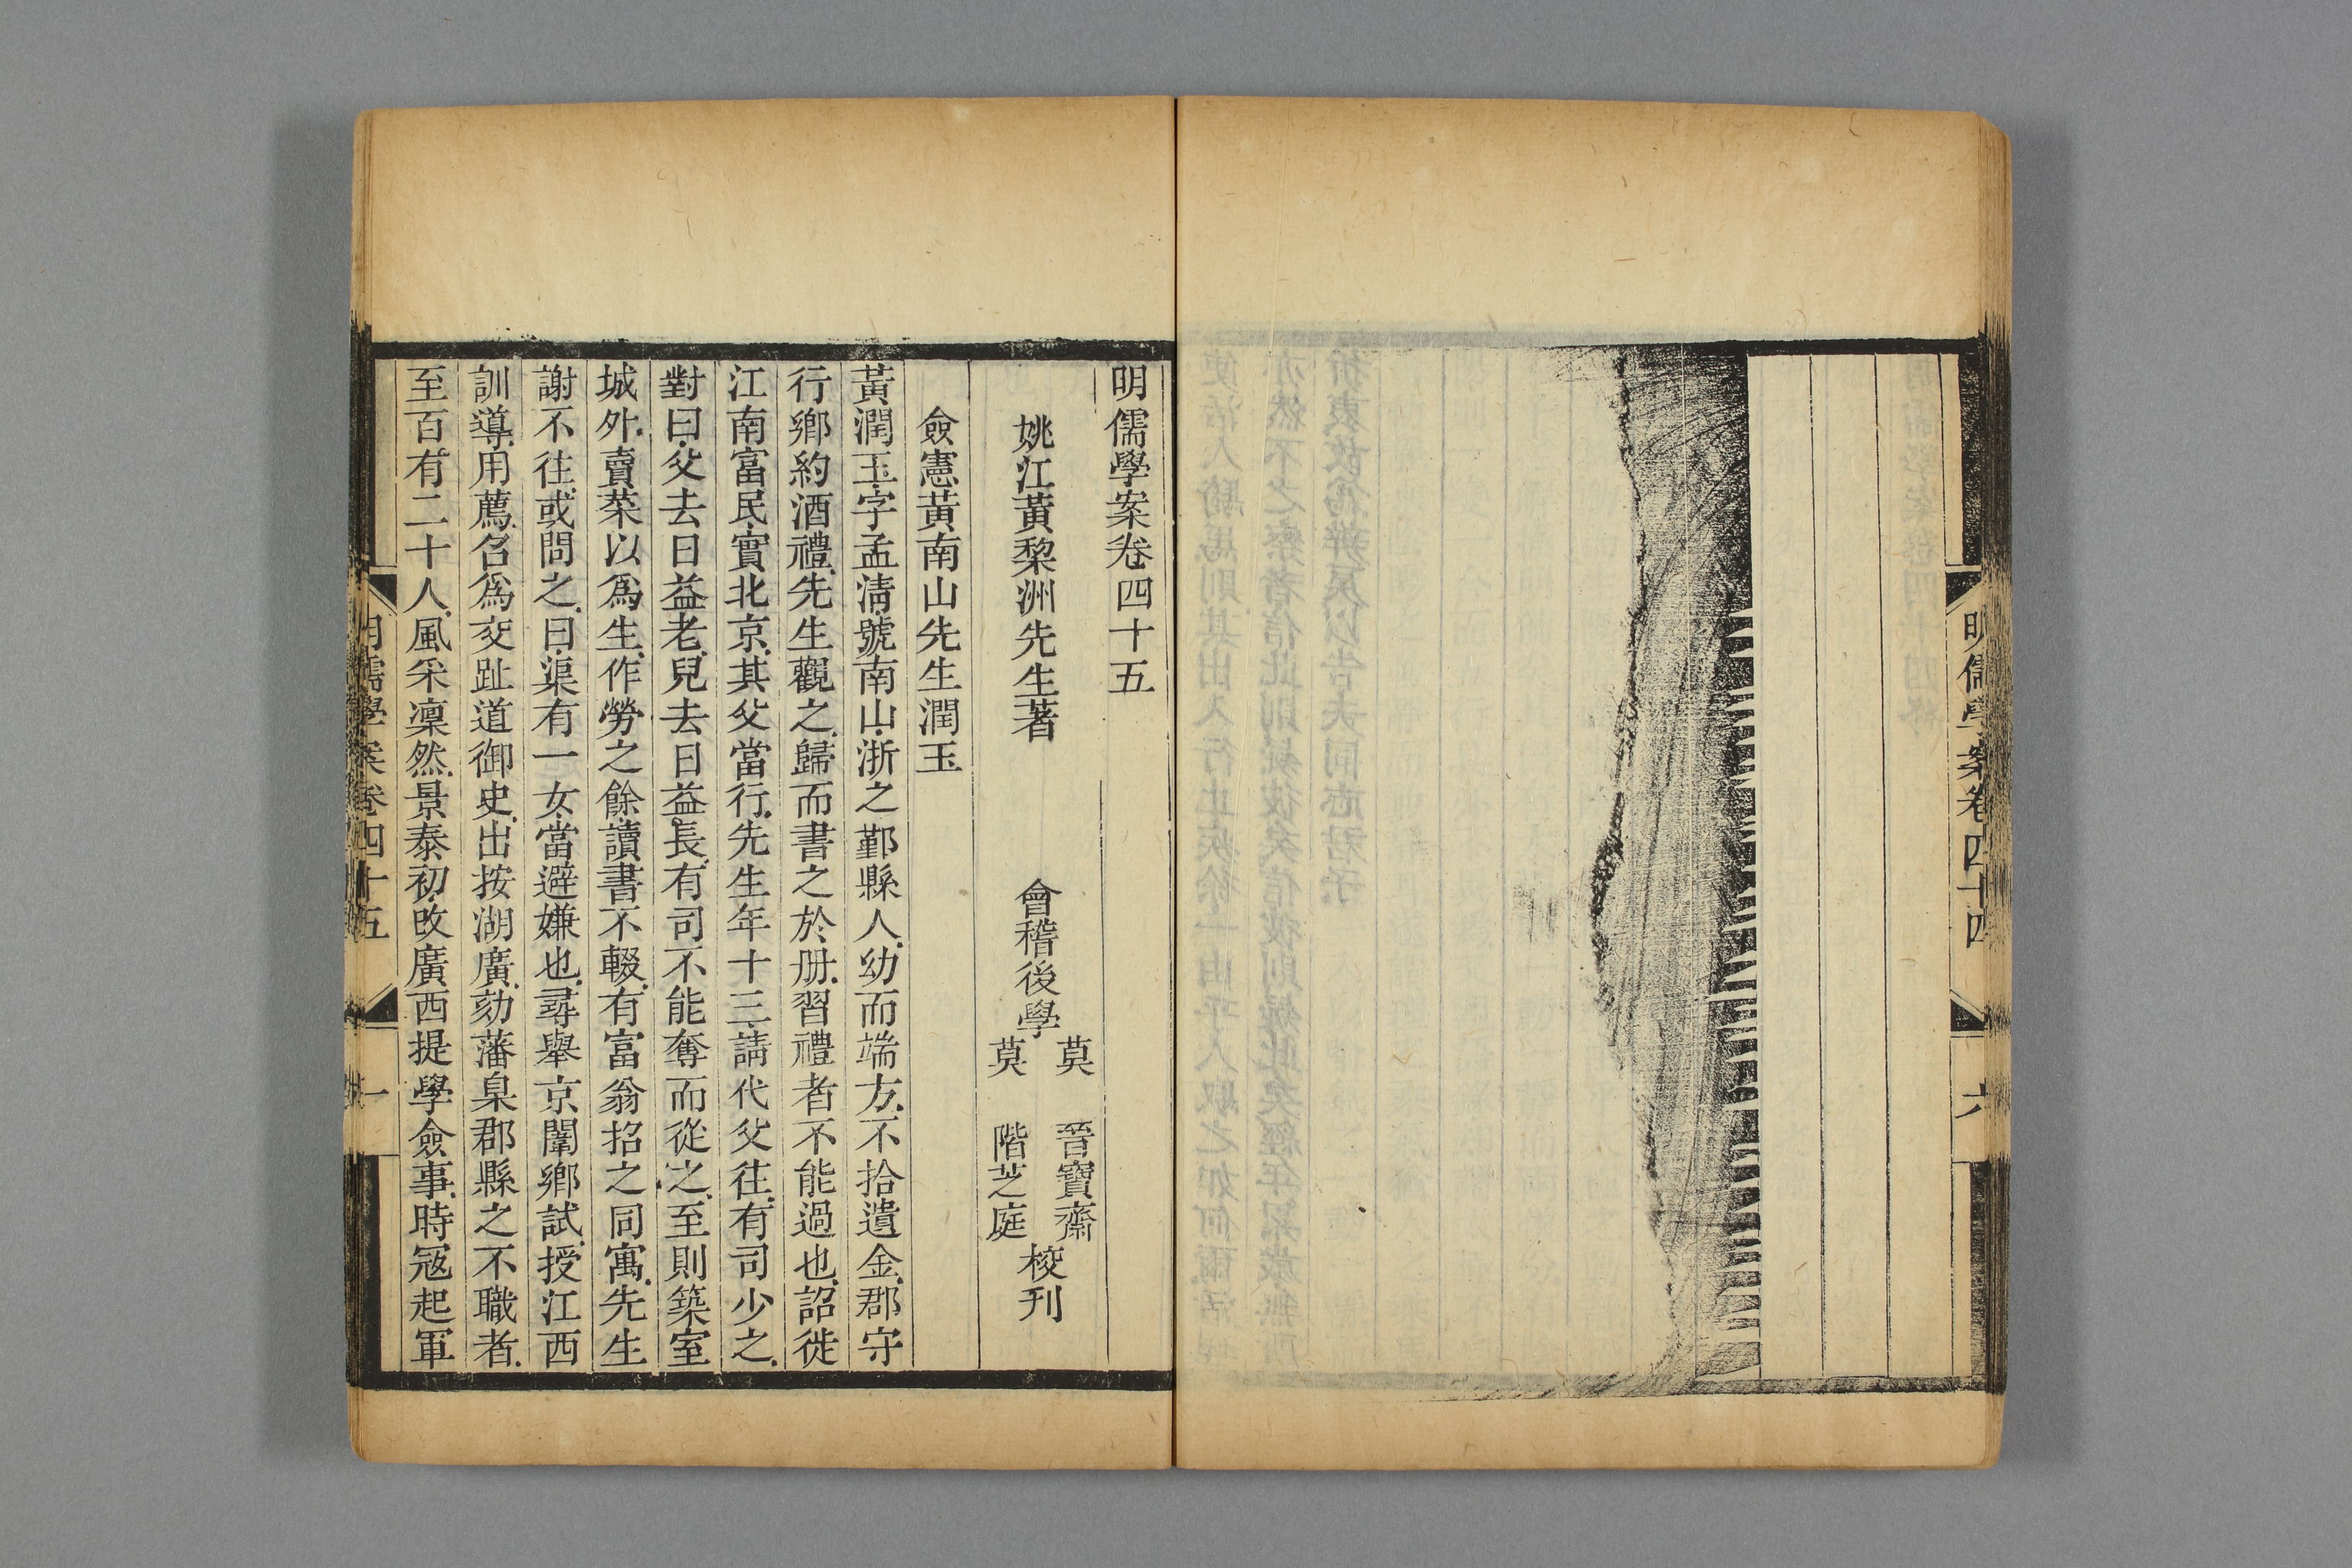 明儒學案卷四十四
六
明儒學案卷四十五
姚江黃棃洲先生著
會稽後學
莫晉寶齋
莫階芝庭
校刊
僉憲黃南山先生潤玉
黃潤玉字孟清號南山浙之鄞縣人幼而端方不拾遺金郡守
行鄉約酒禮先生觀之歸而書之於册習禮者不能過也詔徙
江南富民實北京其父當行先生年十三請代父往有司少之
對曰父去日益老兒去日益長有司不能奪而從之至則築室
城外賣菜以爲生作勞之餘讀書不輟有富翁招之同寓先生
謝不往或問之曰渠有一女當避嫌也尋舉京闈鄉試授江西
訓導用薦召爲交趾道御史出按湖廣劾藩臬郡縣之不職者
至百有二十人風采凜然景泰初改廣西提學僉事時寇起軍
明儒學案卷四十五
一